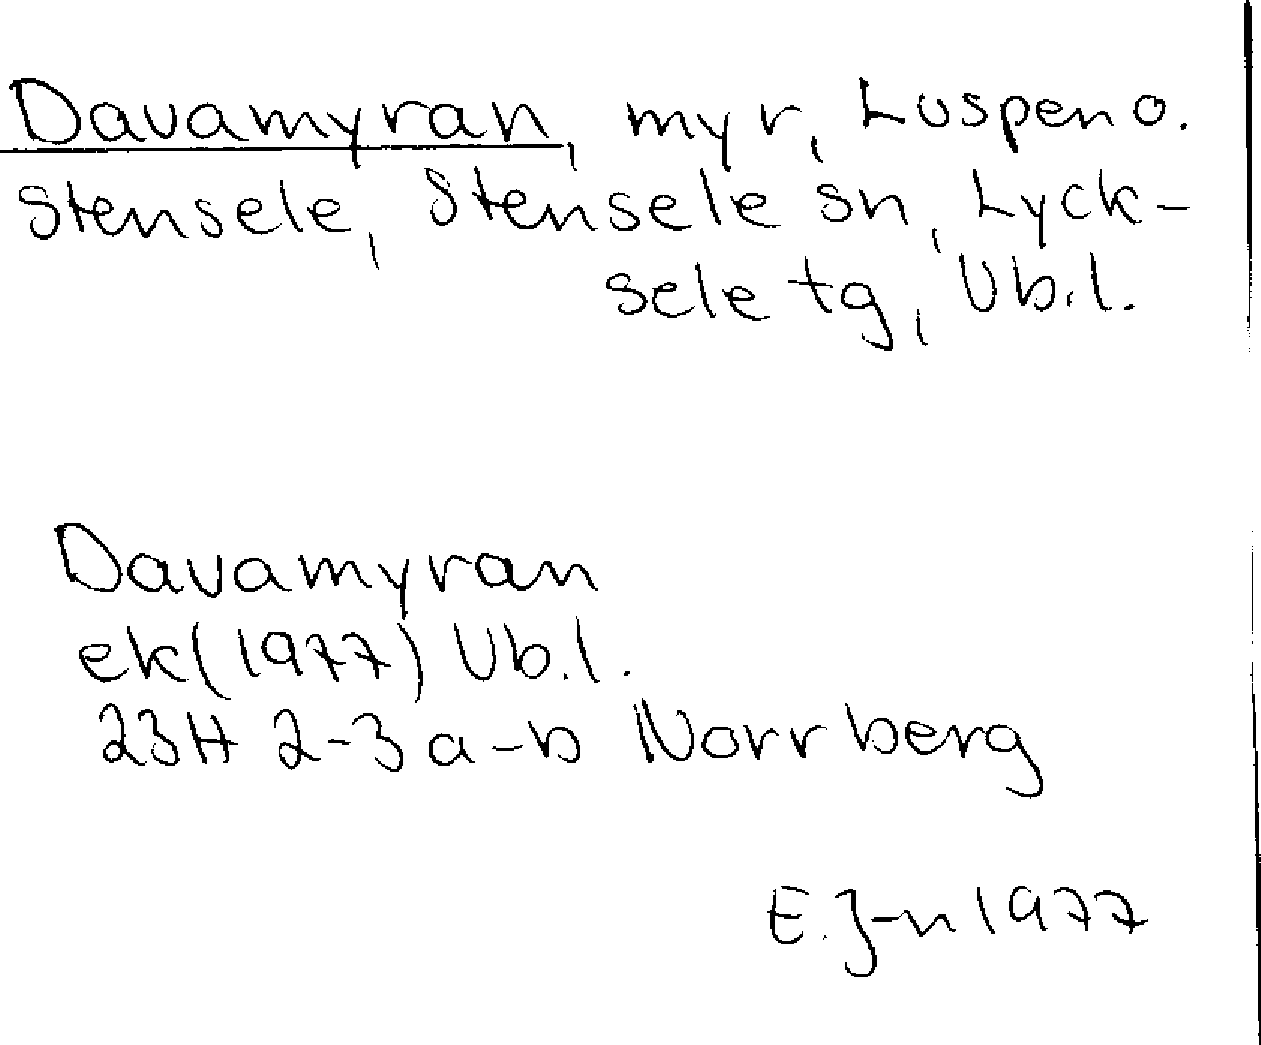 Davamyran, myr, Luspen o.
Stensele, Stensele sn, Lyck-
sele tg, Vb.l.
Davamyran
ek (1977) Vb.l.
23H 2-3 a-b Norrberg
E.J-n 1977